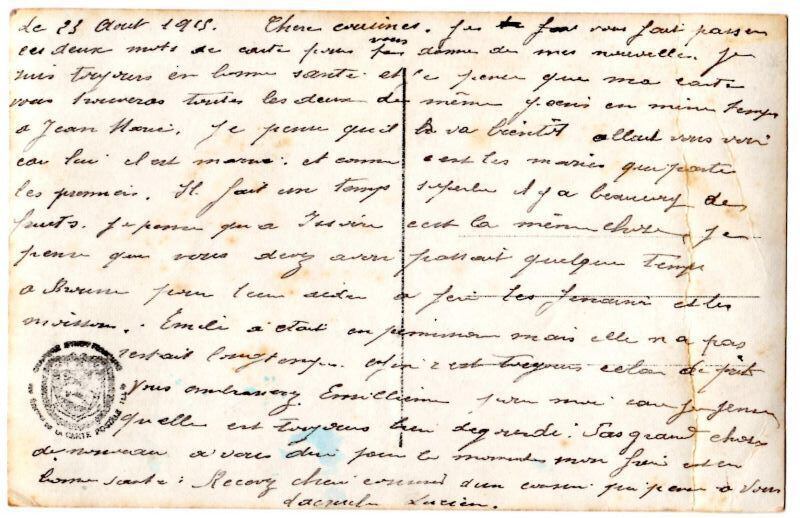 le 23 Aout 1915. Chere cousines. Je vous fait passer
ces deux mots de carte pour vous donne de mes nouvelle. Je
suis toujours en bonne sante et je pense que ma carte
vous trouveras toutes les deux de même
a Jean Marie. Je pense quil va bientôt allait vous voir
car lui il est marié. et comme c'est les mariés qui parte
les premiers. Il fait un temps superbe il y a beaucoup de
fruits. Je pense qu a Issoire cest la même chose, je
pense que vous devez avoir passait quelque temps
a pour leur aider a fair les et les
moissons. Emile a était en permission mais elle n a pas
restait longtemps. enfin c est toujours cela de fait
Vous embrasserez Emilienne pour moi car je pense
quelle est toujours bien degourdi. Pas grand chose
de nouveau a vous dire pour le moment mon frère est en
bonne santé: Recevez chere cousines d'un cousin qui pense a vous
Lucien.